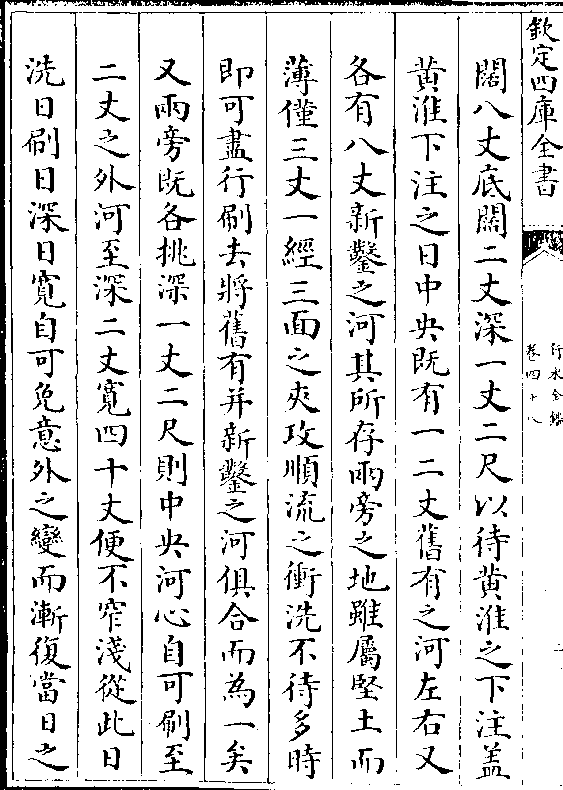 欽定四庫全書
行水金鑑
卷四十八
闊八丈底闊二丈深一丈二尺以待黄淮之下注盖
黄淮下注之日中央既有一二丈舊有之河左右又
各有八丈新鑿之河其所存兩旁之地雖屬堅土而
薄僅三丈一經三面之夾攻順流之衝洗不待多時
即可盡行刷去將舊有并新鑿之河俱合而為一矣
又兩旁既各挑深一丈二尺則中央河心自可刷至
二丈之外河至深二丈寛四十丈便不窄淺從此日
洗日刷日深日寛自可免意外之變而漸復當日之